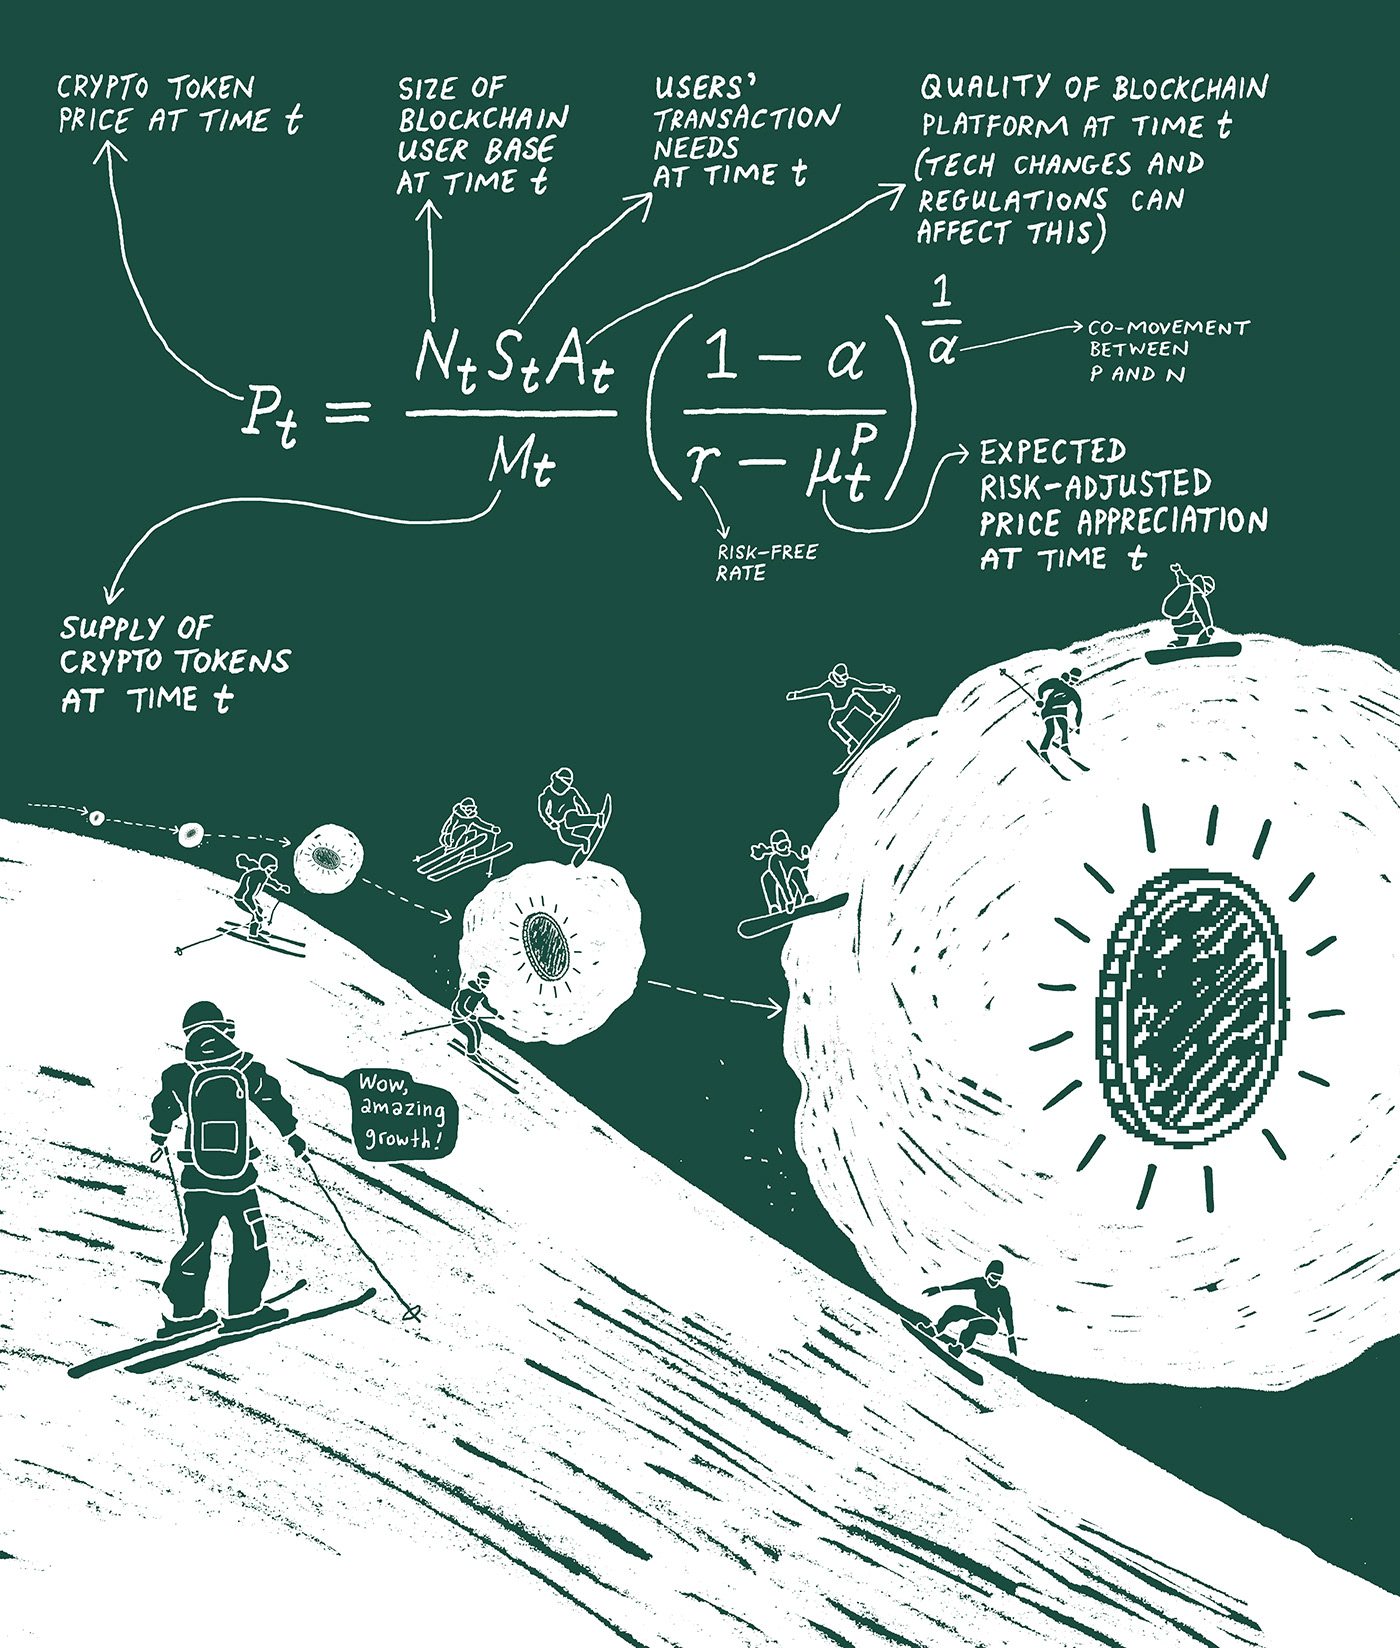 CRYPTO TOKEN
PRICE AT TIME t
SIZE OF
BLOCKCHAIN
USER BASE
AT TIME t
USERS'
TRANSACTION
NEEDS
AT TIME t
QUALITY OF BLOCKCHAIN
PLATFORM AT TIME t
(TECH CHANGES AND
REGULATIONS CAN
AFFECT THIS)
P_t = \frac{N_t S_t A_t}{M_t} \left( \frac{1 - α}{r - μ_t^P} \right)^{\frac{1}{α}}
CO-MOVEMENT
BETWEEN
P AND N
EXPECTED
RISK-ADJUSTED
PRICE APPRECIATION
AT TIME t
RISK-FREE
RATE
SUPPLY OF
CRYPTO TOKENS
AT TIME t
Wow,
amazing
growth!